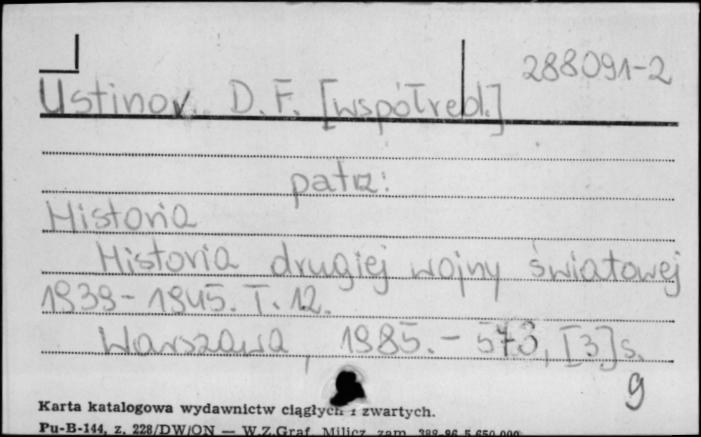 288091-2
Ustinov. D.F. [współred.]
patrz:
Historia
Historia drugiej wojny światowej
1939-1945. T. 12.
Warszawa, 1985. - 573, [3] s.
9
Karta katalogowa wydawnictw ciągłych i zwartych.
Pu-B-144, z. 228/DW/ON — W.Z.Graf. Milicz, zam. 388-86 5.650.000